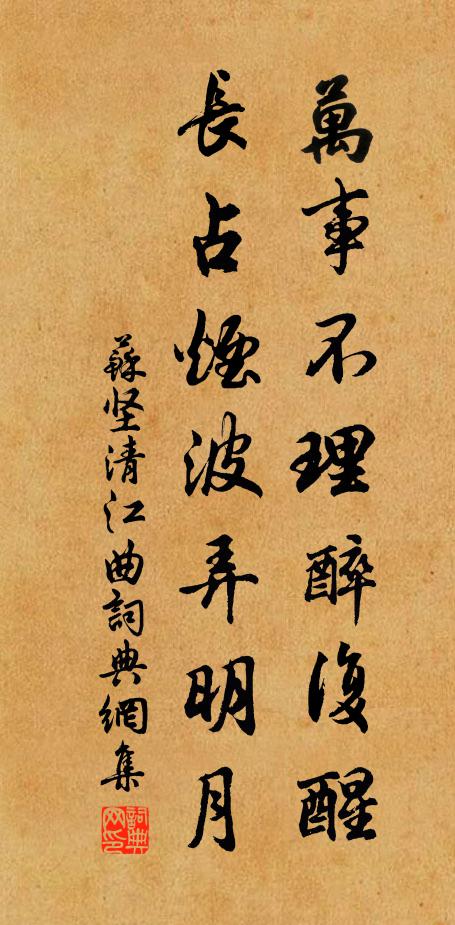 萬事不理醉復醒
長占煙波弄明月
蘇坚清江曲詞典網集
詞典
网印